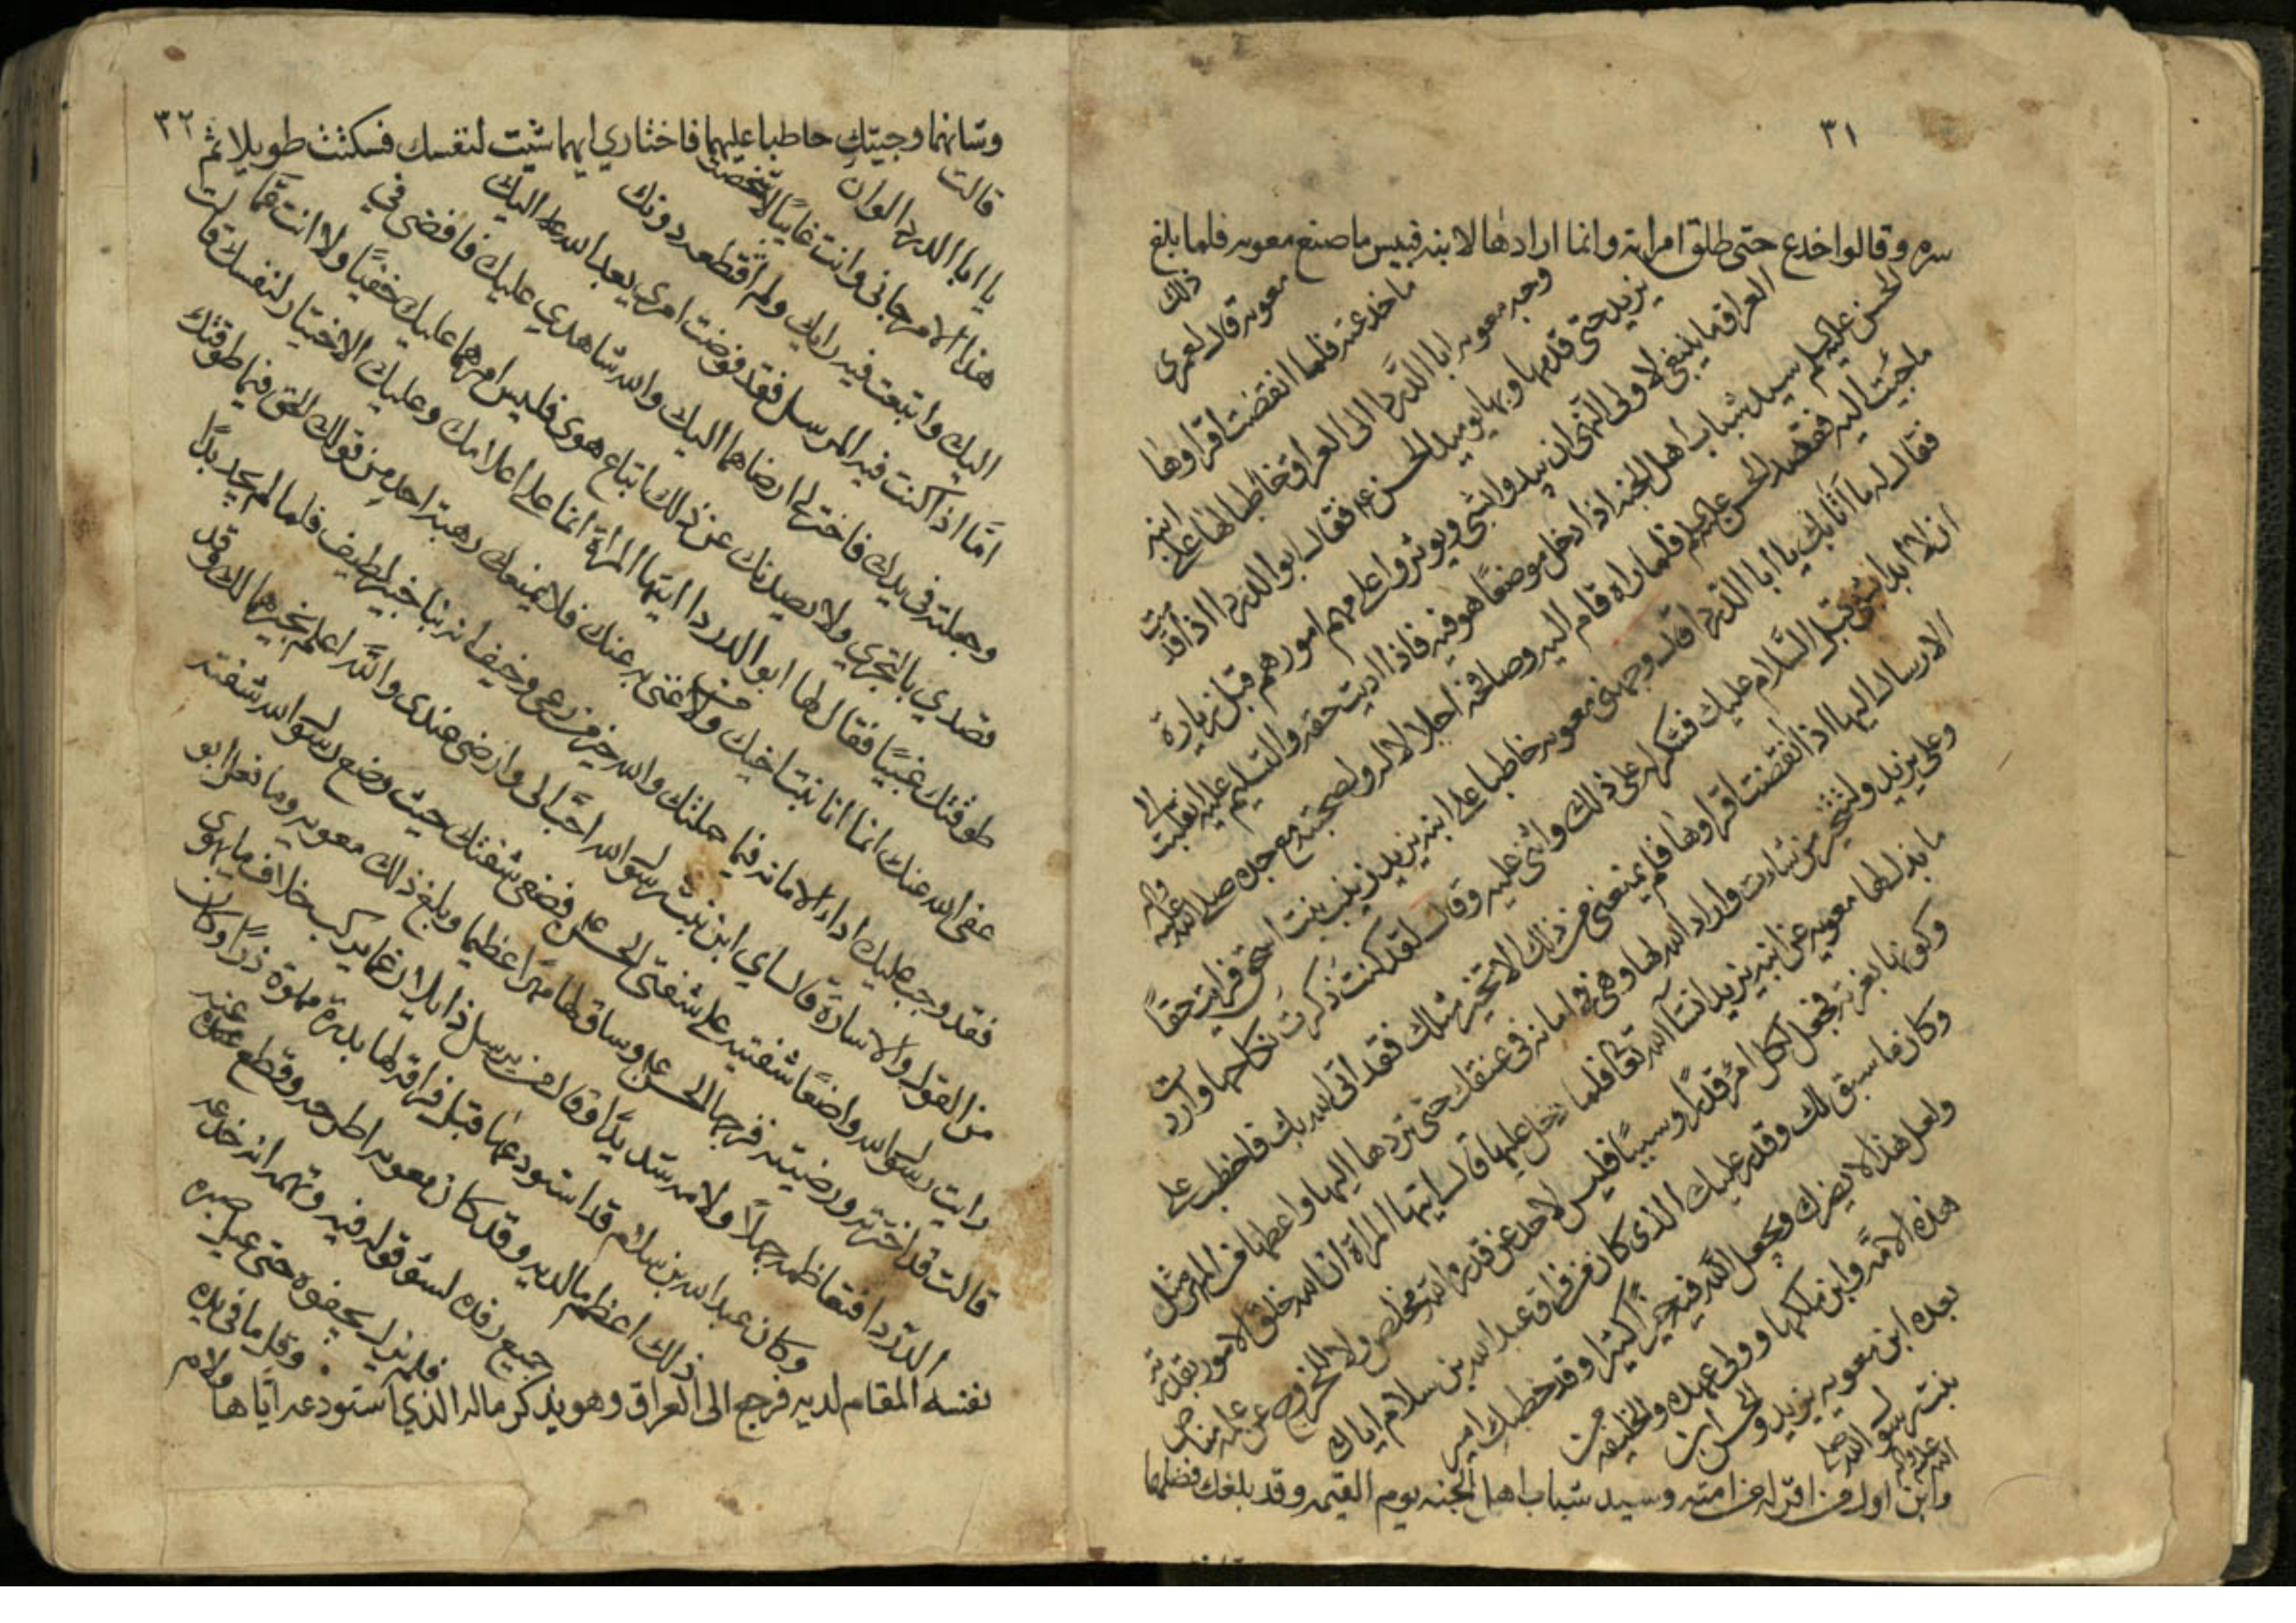 ٣١
سره وقالوا خدع حتى طلق امراته وانما ارادها لابنه فبيس ما صنع معويه فلما بلغ
ذلك
معويه قال لعمري
ما خدعته فلما انقضت اقراوها
وجه معويه ابا الدردا الى العراق خاطبا لها على ابنه
يزيد حتى قدمها وبها يوميذ الحسن ع م فقال ابو الدردا اذ قدمت
العراق ما ينبغي لاولي النهى ان يبدوا بشي ويوثروا على مهم امورهم قبل زيارة
الحسن عليه السلم سيد شباب اهل الجنه اذا دخل موضعا هو فيه فاذا اديت حقه والتسليم عليه انقلبت الى
ماجيت اليه فقصد الحسن عليه السلم فلما راه قام اليه وصافحه اجلالا له ولصحبته مع جده صلى الله عليه واله
فقال له ما اتا بك يا ابا الدردا قال وجهني معويه خاطبا على ابنه يزيد زينب بنت اسحق فرايت حقا
ان لا ابدا بشي قبل السلام عليك فشكره على ذلك واثنى عليه وقال لقد كنت ذكرت نكاحها واردت
الارسال اليها اذا انقضت اقراوها فلم يمنعني من ذلك الا تخير مثلك فقد اتى الله بك فاخطب علي
وعلى يزيد ولتتخير من شات واراد الله لها وهي امانه في عنقك حتى تردها اليها واعطها من المهر مثل
ما بذل لها معويه عن ابنه يزيد انشا الله تعالى فلما دخل عليها قال ايتها المراة ان الله خلق الامور بقدرته
وكونها بعزته فجعل لكل امر قدرا وسببا فليس لاحد عن قدر الله مخلص ولا للخروج عن علمه مناص
وكان مما سبق لك وقدر عليك الذي كان من فراق عبد الله بن سلام اياك
ولعل هذا لا يضرك ويجعل الله فيه خيرا كثيرا وقد خطبك امير
هذه الامة وابن ملكها وولي عهده والخليفه من
بعده ابن معويه يزيد والحسن ابن
بنت رسول الله صلى
الله عليه واله
وابن اول من اقر له من امته وسيد شباب اهل الجنه يوم القيمه وقد بلغك فضلهما
٣٢
وشانهما وجيتك خاطبا عليهما فاختاري ايهما شيت لنفسك فسكتت طويلا ثم
قالت
يا ابا الدردا لو ان
هذا الامر جاني وانت غايبا لاشخصت
اليك واتبعت فيه رايك ولم اقطعه دونك
اما اذا كنت فيه المرسل فقد فوضت امري بعد الله اليك
وجعلته في يدك فاختر لي ارضاهما اليك والله شاهدي عليك فاقضى في
قصدي بالتحري ولا يصدنك عن ذلك اتباع هوى فليس امرهما عليك خفيا ولا انت عما
طوقتك غبيا فقال لها ابو الدردا ايتها المراة انما علي اعلامك وعليك الاختيار لنفسك قالت
عفى الله عنك انما انا بنت اخيك ولا غنى به عنك فلا يمنعك رهبة احد من قولك الحق فيما طوقتك
فقد وجب عليك اداء الامانه فيما حملتك والله خير من رعي وخيف انه بنا خبير لطيف فلما لم يجد بدا
من القول والاشارة قال اي ابن بنت رسول الله احب الي وارضى عندي والله اعلم بخيرهما لك وقد
رايت رسول الله واضعا شفتيه على شفتي الحسن ع فضعي شفتك حيث وضع رسول الله شفته
قالت قد اخترته ورضيته فزوجها الحسن ع وساق لها مهرا عظيما وبلغ ذلك معويه وما فعل ابو
الدردا فتعاظمه جهلا ولامه وقال من يرسل ذا يركب خلاف ما يهوى
وكان عبد الله بن سلام قد استودعها قبل فراقه لها بدرة مملوة درا وكان
ذلك اعظم ما لديه وقد كان معويه اطرحه وقطع عنه
جميع رفده لسؤ قوله فيه وتهمه انه خدعه
فلم يزل يجفوه حتى عيل صبره
وقل ما في يده ولام
نفسه المقام لديه فرجع الى العراق وهو يذكر ماله الذي استودعه اياها